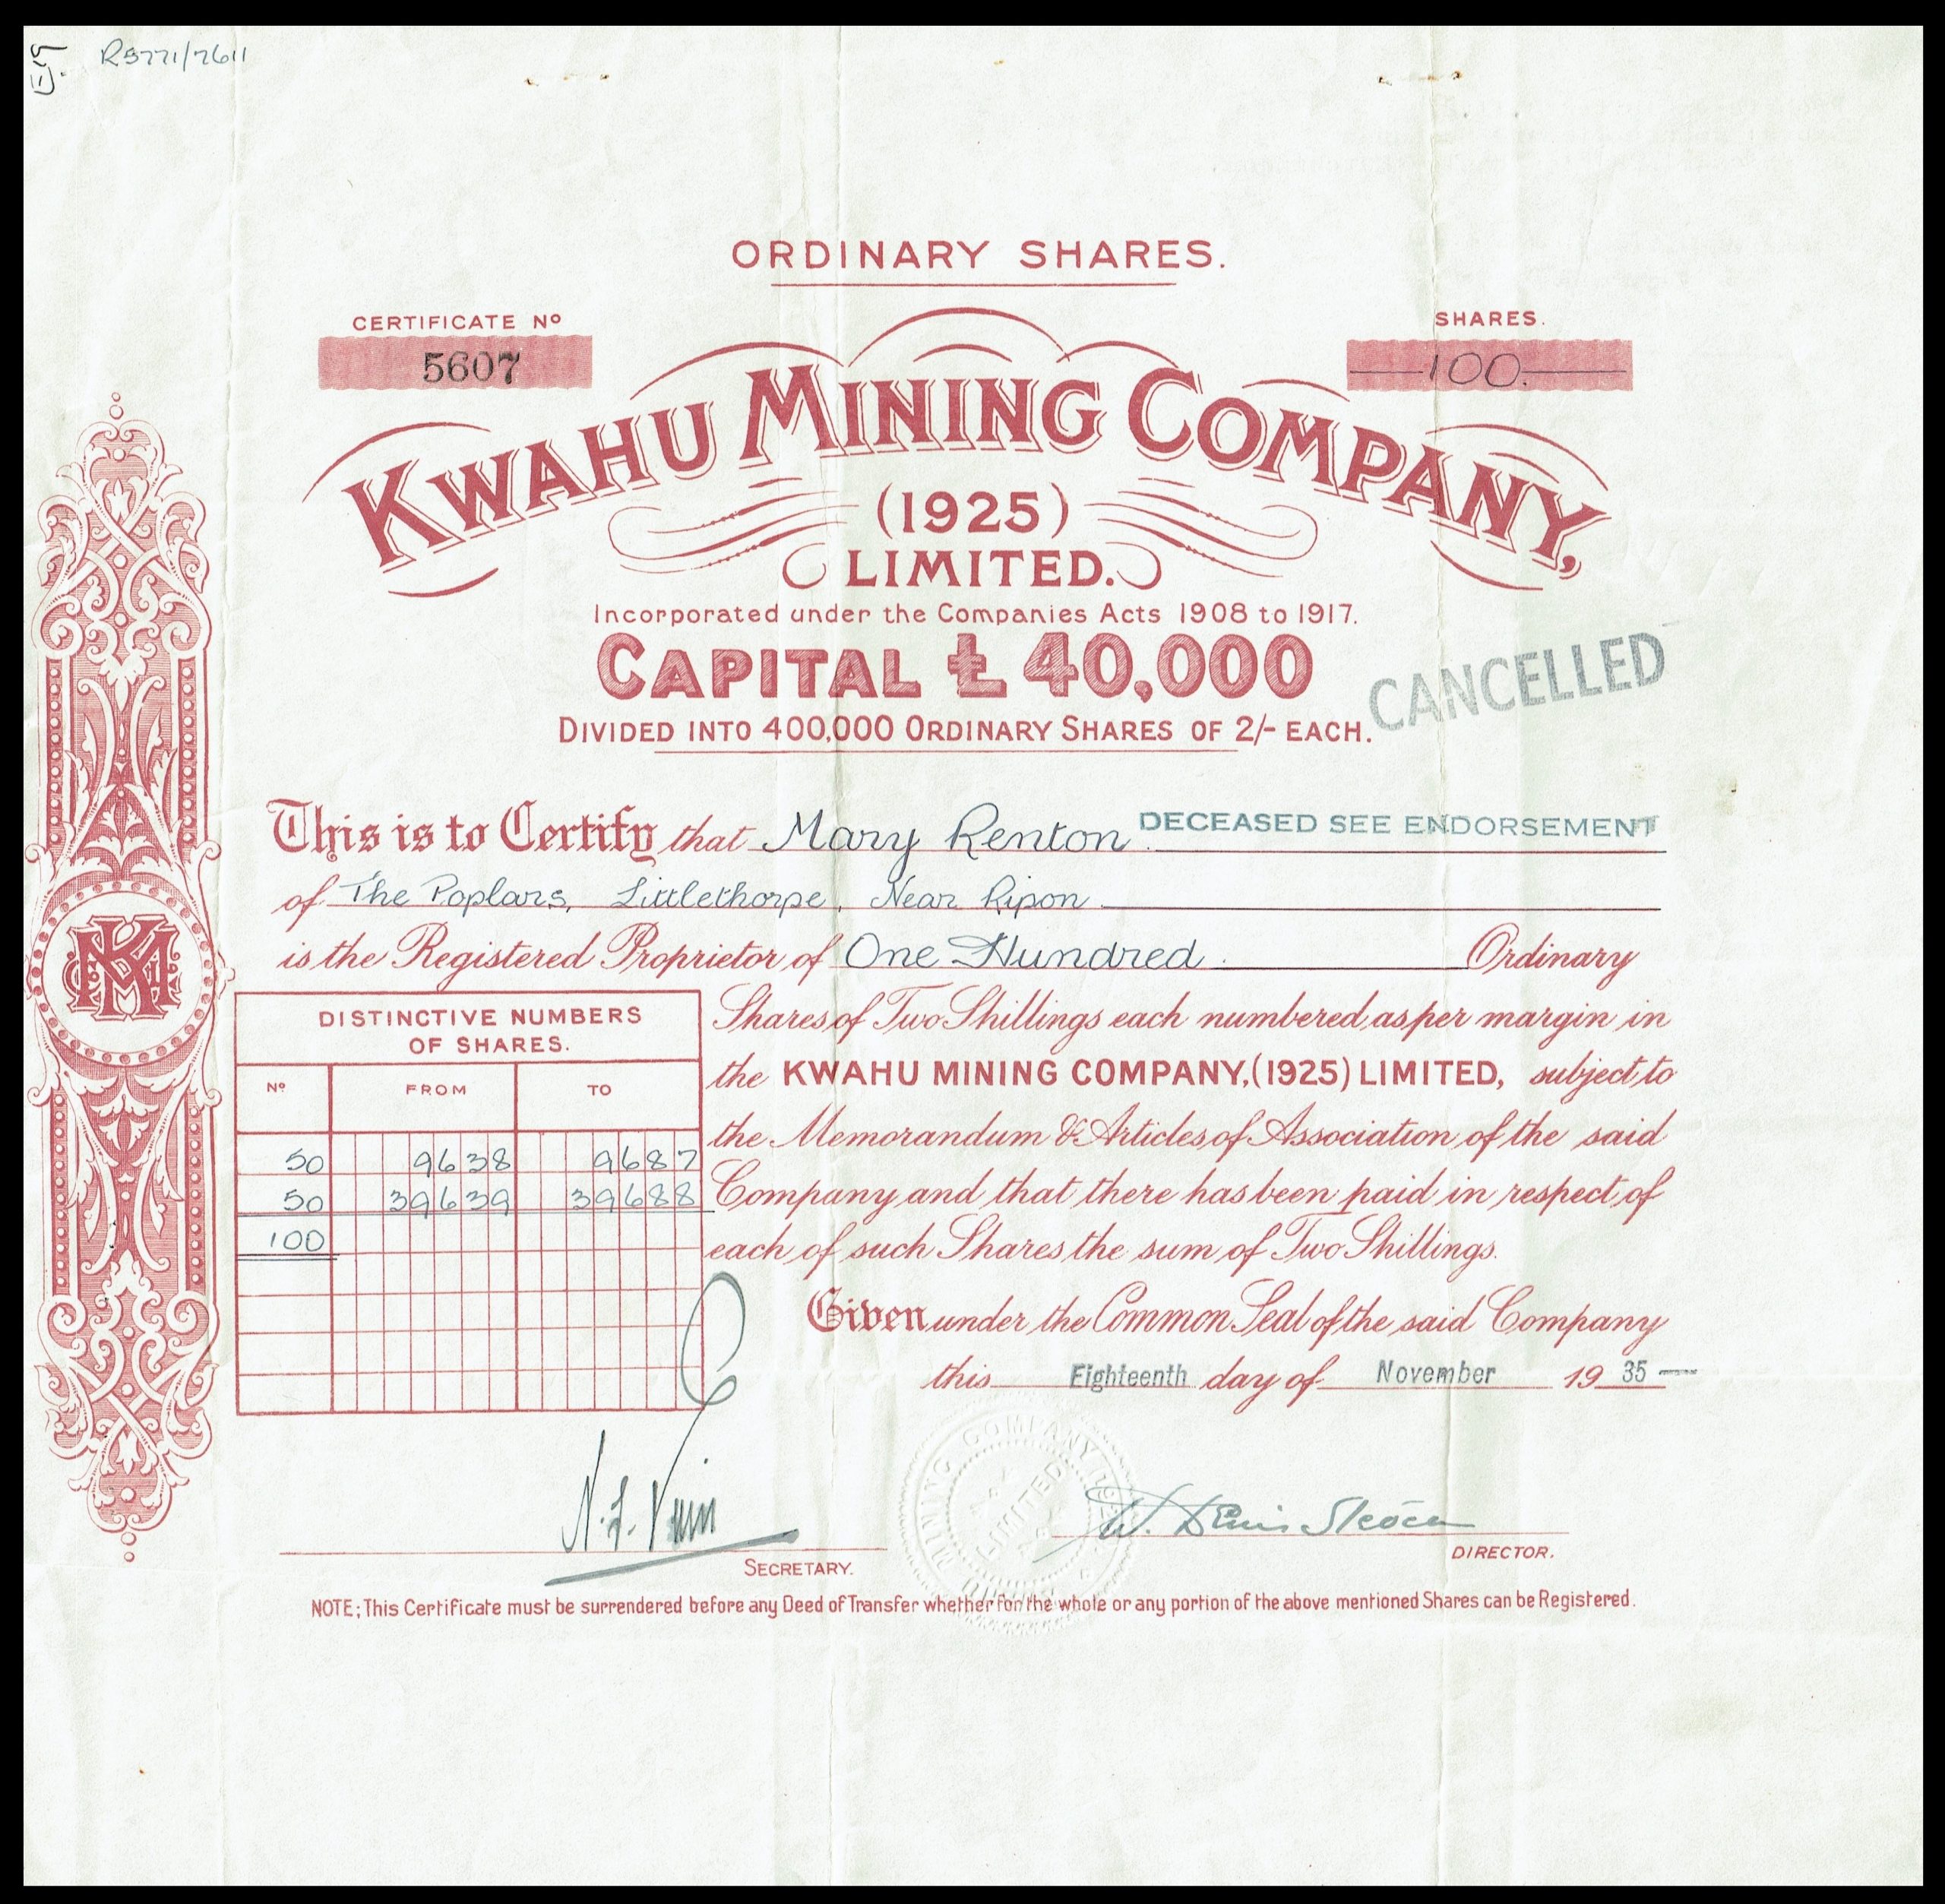 R5771/7611
ORDINARY SHARES.
CERTIFICATE Nº
5607
SHARES.
100.
KWAHU MINING COMPANY,
(1925)
LIMITED.
Incorporated under the Companies Acts 1908 to 1917.
CAPITAL £40,000
DIVIDED INTO 400,000 ORDINARY SHARES OF 2/- EACH.
CANCELLED
This is to Certify that Mary Renton DECEASED SEE ENDORSEMENT
of The Poplars, Littlethorpe, Near Ripon
is the Registered Proprietor of One Hundred Ordinary
Shares of Two Shillings each numbered, as per margin in
the KWAHU MINING COMPANY, (1925) LIMITED, subject, to
the Memorandum & Articles of Association of the said
Company and that there has been paid in respect of
each of such Shares the sum of Two Shillings.
DISTINCTIVE NUMBERS
OF SHARES.
Nº FROM TO
50 9638 9687
50 39639 39688
100
Given under the Common Seal of the said Company
this Eighteenth day of November 19 35
MINING COMPANY
LIMITED
SECRETARY.
DIRECTOR.
NOTE; This Certificate must be surrendered before any Deed of Transfer whether for the whole or any portion of the above mentioned Shares can be Registered.